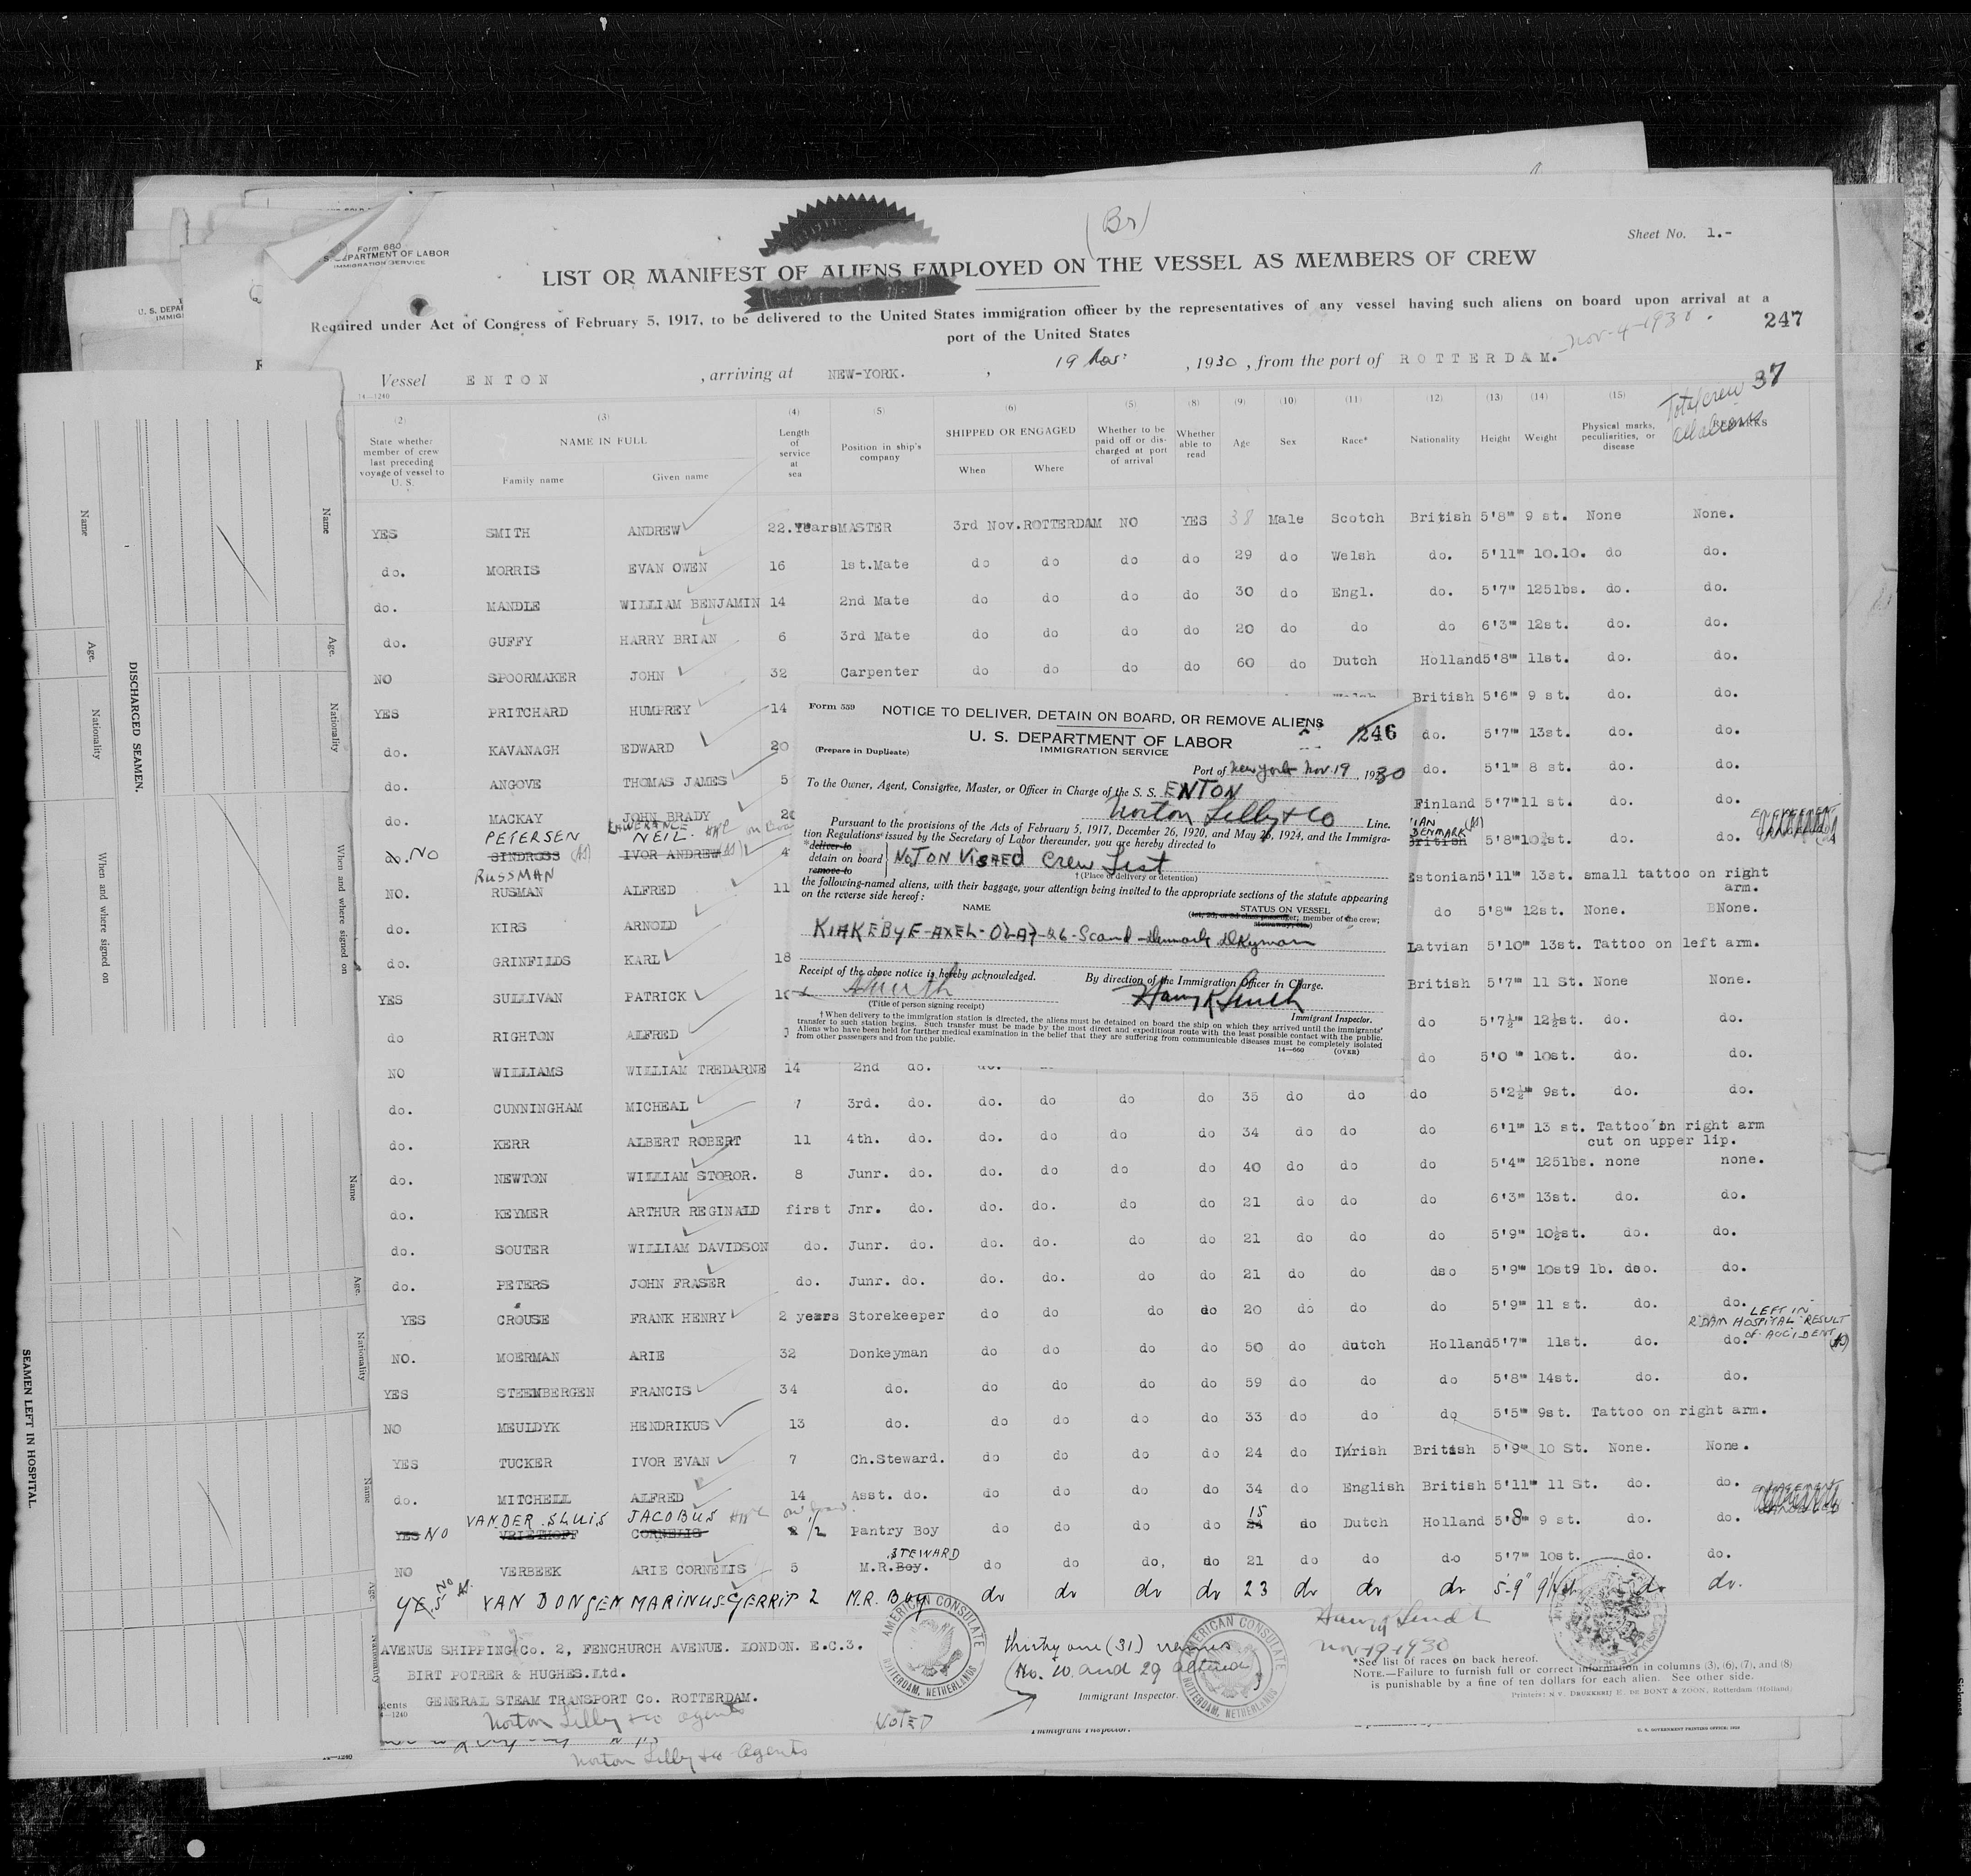 (Br)
Sheet No. 1.-
Form 680
U. S. DEPARTMENT OF LABOR
IMMIGRATION SERVICE
LIST OR MANIFEST OF ALIENS EMPLOYED ON THE VESSEL AS MEMBERS OF CREW
Required under Act of Congress of February 5, 1917, to be delivered to the United States immigration officer by the representatives of any vessel having such aliens on board upon arrival at a
port of the United States
247
Vessel ENTON , arriving at NEW-YORK. , 19 Nov: , 1930, from the port of ROTTERDAM. - Nov-4-1930.
14-1240
Total crew 37
All aliens
(2) State whether member of crew last preceding voyage of vessel to U. S.
(3) NAME IN FULL Family name Given name
(4) Length of service at sea
(5) Position in ship's company
(6) SHIPPED OR ENGAGED When Where
(5) Whether to be paid off or discharged at port of arrival
(8) Whether able to read
(9) Age
(10) Sex
(11) Race*
(12) Nationality
(13) Height
(14) Weight
(15) Physical marks, peculiarities, or disease
REMARKS
YES SMITH ANDREW 22.Years MASTER 3rd Nov. ROTTERDAM NO YES 38 Male Scotch British 5'8" 9 st. None None.
do. MORRIS EVAN OWEN 16 1st.Mate do do do do 29 do Welsh do. 5'11" 10.10. do do.
do. MANDLE WILLIAM BENJAMIN 14 2nd Mate do do do do 30 do Engl. do. 5'7" 125lbs. do. do.
do. GUFFY HARRY BRIAN 6 3rd Mate do do do do 20 do do do 6'3" 12st. do. do.
NO SPOORMAKER JOHN 32 Carpenter do do do do 60 do Dutch Holland 5'8" 11st. do. do.
YES PRITCHARD HUMPREY 14 British 5'6" 9 st. do. do.
do. KAVANAGH EDWARD 20 do. 5'7" 13st. do. do.
do. ANGOVE THOMAS JAMES 5 do. 5'1" 8 st. do. do.
do. MACKAY JOHN BRADY Finland 5'7" 11 st. do. do.
PETERSEN LAWERANCE NEIL.
do. NO SINDROSS IVOR ANDREW 4 DENMARK British 5'8" 10½st. do. do.
RUSSMAN
NO. RUSMAN ALFRED 11 Estonian 5'11" 13st. small tattoo on right arm.
do. KIRS ARNOLD do 5'8" 12st. None. None.
do. GRINFILDS KARL 18 Latvian 5'10" 13st. Tattoo on left arm.
YES SULLIVAN PATRICK British 5'7" 11 St. None None.
do RIGHTON ALFRED do 5'7½" 12½st. do. do.
NO WILLIAMS WILLIAM TREDARNE 14 2nd do. do 5'0" 10st. do. do.
do. CUNNINGHAM MICHEAL 7 3rd. do. do. do do do 35 do do do 5'2½" 9st. do. do.
do. KERR ALBERT ROBERT 11 4th. do. do. do do do 34 do do do 6'1" 13 st. Tattoo on right arm
cut on upper lip.
do. NEWTON WILLIAM STOROR. 8 Junr. do. do. do do do 40 do do do 5'4" 125lbs. none none.
do. KEYMER ARTHUR REGINALD first Jnr. do. do. do. do do 21 do do do 6'3" 13st. do. do.
do. SOUTER WILLIAM DAVIDSON do. Junr. do. do. do. do do 21 do do do 5'9" 10½st. do. do.
do. PETERS JOHN FRASER do. Junr. do. do. do. do do 21 do do dso 5'9" 10st9 lb. dso. do.
YES CROUSE FRANK HENRY 2 years Storekeeper do do do do 20 do do do 5'9" 11 st. do. do.
LEFT IN
R'DAM HOSPITAL RESULT
OF ACCIDENT
NO. MOERMAN ARIE 32 Donkeyman do do do do 50 do dutch Holland 5'7" 11st. do. do.
YES STEENBERGEN FRANCIS 34 do. do do do do 59 do do do 5'8" 14st. do. do.
NO MEULDYK HENDRIKUS 13 do. do do do do 33 do do do 5'5" 9st. Tattoo on right arm.
YES TUCKER IVOR EVAN 7 Ch.Steward. do do do do 24 do Irish British 5'9" 10 St. None. None.
do. MITCHELL ALFRED 14 Asst. do. do do do do 34 do English British 5'11" 11 St. do. do.
VANDER.SLUIS JACOBUS 15
YES NO VRIETHOFF CORNELIS 1/2 Pantry Boy do do do do 24 do Dutch Holland 5'8" 9 st. do. do.
STEWARD
NO VERBEEK ARIE CORNELIS 5 M.R.Boy. do do do, do 21 do do do 5'7" 10st. do. do.
YES NO VAN DONGEN MARINUS-GERRIT 2 M.R. Boy do do do do 23 do do do 5-9" do do.
AVENUE SHIPPING Co. 2, FENCHURCH AVENUE. LONDON. E.C.3.
BIRT POTRER & HUGHES.Ltd.
GENERAL STEAM TRANSPORT Co. ROTTERDAM.
Norton Lilly & Co agents
AMERICAN CONSULATE
ROTTERDAM, NETHERLANDS
thirty one (31) names
(No. 10 and 29 altered)
Immigrant Inspector.
AMERICAN CONSULATE
ROTTERDAM, NETHERLANDS
NOTED
Nov-19-1930
*See list of races on back hereof.
NOTE.—Failure to furnish full or correct information in columns (3), (6), (7), and (8)
is punishable by a fine of ten dollars for each alien. See other side.
Printers: N V. DRUKKERIJ H. DE BONT & ZOON, Rotterdam (Holland)
Immigrant Inspector.
Norton Lilly & Co-Agents
Form 559
NOTICE TO DELIVER, DETAIN ON BOARD, OR REMOVE ALIENS
246
U. S. DEPARTMENT OF LABOR
(Prepare in Duplicate) IMMIGRATION SERVICE
Port of New York Nov 19, 1930
To the Owner, Agent, Consignee, Master, or Officer in Charge of the S. S. ENTON
Norton Lilly & Co Line.
Pursuant to the provisions of the Acts of February 5, 1917, December 26, 1920, and May 26, 1924, and the Immigra-
tion Regulations issued by the Secretary of Labor thereunder, you are hereby directed to
*deliver to
detain on board NOT ON VISAED Crew List
remove to
† (Place of delivery or detention)
the following-named aliens, with their baggage, your attention being invited to the appropriate sections of the statute appearing
on the reverse side hereof:
NAME STATUS ON VESSEL
(1st, 2d, or 3d class passenger; member of the crew;
stowaway, etc.)
KIRKEBYE-AXEL-OLAF-26-Scand-Denmark DKyman
Receipt of the above notice is hereby acknowledged. By direction of the Immigration Officer in Charge.
x ASmith Harry R Smith
(Title of person signing receipt) Immigrant Inspector.
† When delivery to the immigration station is directed, the aliens must be detained on board the ship on which they arrived until the immigrants'
transfer to such station begins. Such transfer must be made by the most direct and expeditious route with the least possible contact with the public.
Aliens who have been held for further medical examination in the belief that they are suffering from communicable diseases must be completely isolated
from other passengers and from the public.
14—660 (OVER)
DISCHARGED SEAMEN.
Name Age. Nationality When and where signed on
Name Age. Nationality When and where signed on
SEAMEN LEFT IN HOSPITAL.
Name Age. Nationality
Name Age. Nationality